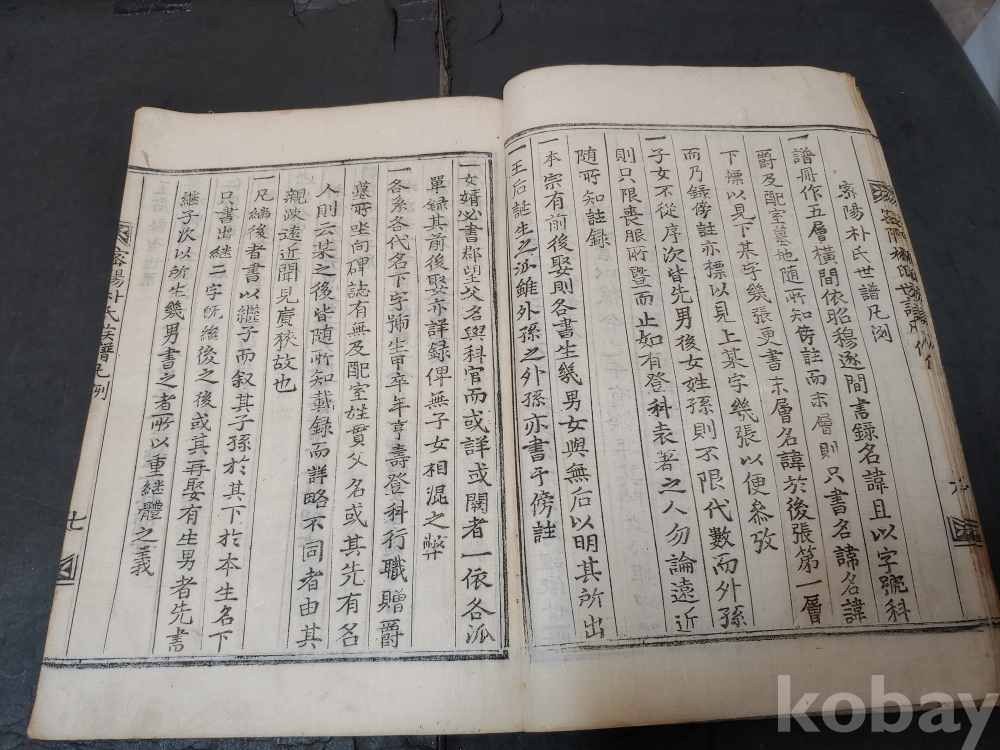 密陽朴氏世譜凡例
一譜冊作五層橫間依昭穆逐間書録名諱且以字號科
爵及配室墓地随所知傍註而末層則只書名諱名諱
下標以見下某字幾張更書末層名諱於後張第一層
而乃録傍註亦標以見上某字幾張以便叅攷
一子女不從序次皆先男後女姓孫則不限代數而外孫
則只限喪服所暨而止如有登科表著之人勿論遠近
随所知註録
一本宗有前後娶則各書生幾男女與無后以明其所出
一王后誕生之派雖外孫之外孫亦書于傍註
一女婿必書郡望父名與科官而或詳或闕者一依各派
單録其前後娶亦詳録俾無子女相混之弊
一各系各代名下字號生甲卒年享壽登科行職贈爵
墓所坐向碑誌有無及配室姓貫父名或其先有名
人則云某之後皆随所知載録而詳略不同者由其
親疎遠近聞見廣狹故也
一凡繼後者書以繼子而叙其子孫於其下於本生名下
只書出継二字旣継後之後或其再娶有生男者先書
継子次以所生幾男書之者所以重継體之義
密陽朴氏族譜凡例
七
kobay